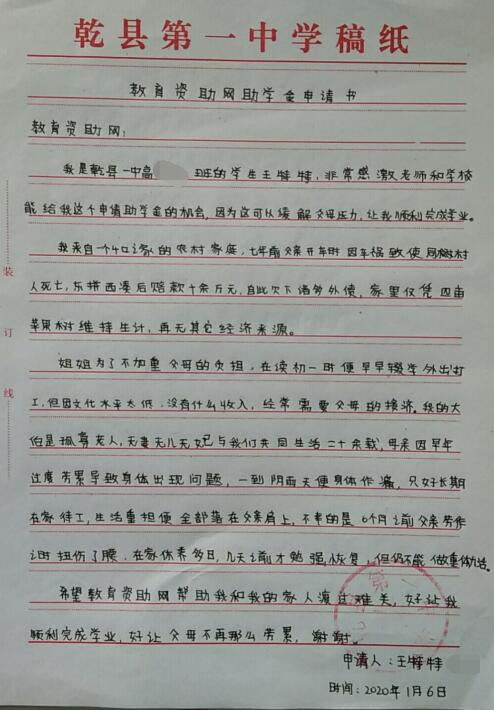 乾县第一中学稿纸
教育资助网助学金申请书
教育资助网:
我是乾县一中高 班的学生王特特,非常感激老师和学校
能给我这个申请助学金的机会,因为这可以缓解父母压力,让我顺利完成学业。
我来自一个4口之家的农村家庭,七年前父亲开车时因车祸致使同村村
人死亡,东措西凑后赔款十余万元,自此欠下诸多外债,家里仅凭四亩
苹果树维持生计,再无其它经济来源。
姐姐为了不加重父母的负担,在读初一时便早早辍学外出打
工,但因文化水平太低,没有什么收入,经常需要父母的接济。我的大
伯是孤寡老人,无妻无儿无女与我们共同生活二十余载,母亲因早年
过度劳累导致身体出现问题,一到阴雨天便身体作痛,只好长期
在家待工,生活重担便全部落在父亲肩上,不幸的是6个月前父亲劳作
时扭伤了腰,在家休养多日,几天前才勉强恢复,但仍不能做重体力活。
希望教育资助网帮助我和我的家人渡过难关,好让我
顺利完成学业,好让父母不再那么劳累,谢谢。
申请人:王特特
时间:2020年1月6日
装
订
线